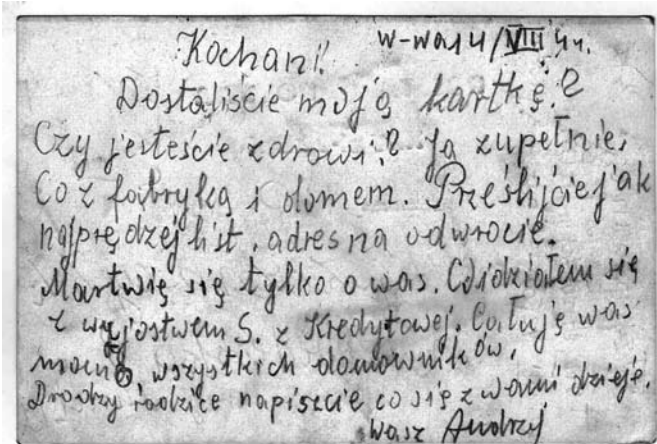 W-wa 14/VIII 44.
Kochani!
Dostaliście moją kartkę?
Czy jesteście zdrowi? Ja zupełnie.
Co z fabryką i domem. Prześlijcie jak
najprędzej list, adres na odwrocie.
Martwię się tylko o was. Widziałem się
z wujostwem S. z Kredytowej. Całuję was
mocno wszystkich domowników.
Drodzy rodzice napiszcie co się z wami dzieje.
Wasz Andrzej